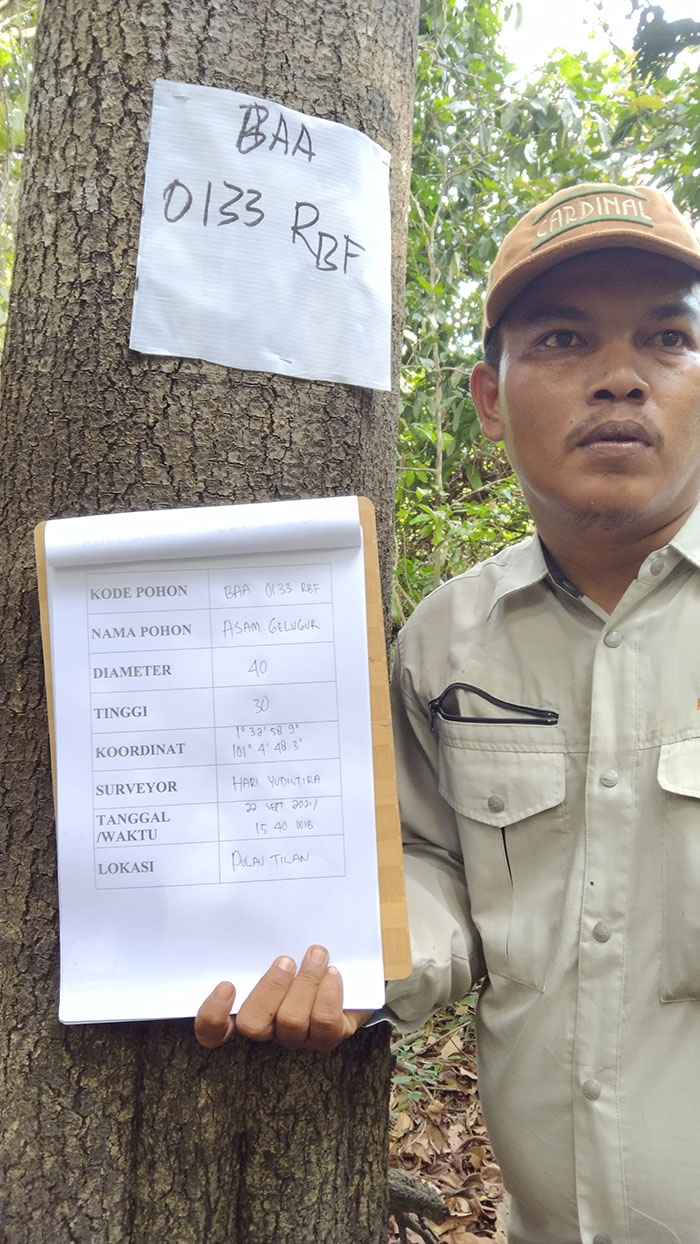 BAA
0133 RBF
CARDINAL
KODE POHON BAA 0133 RBF
NAMA POHON ASAM GELUGUR
DIAMETER 40
TINGGI 30
KOORDINAT 1° 32' 58 9"
101° 4' 48 3"
SURVEYOR HARI YUDISTIRA
TANGGAL /WAKTU 22 SEPT 2021/
15 40 WIB
LOKASI PULAU TILAN